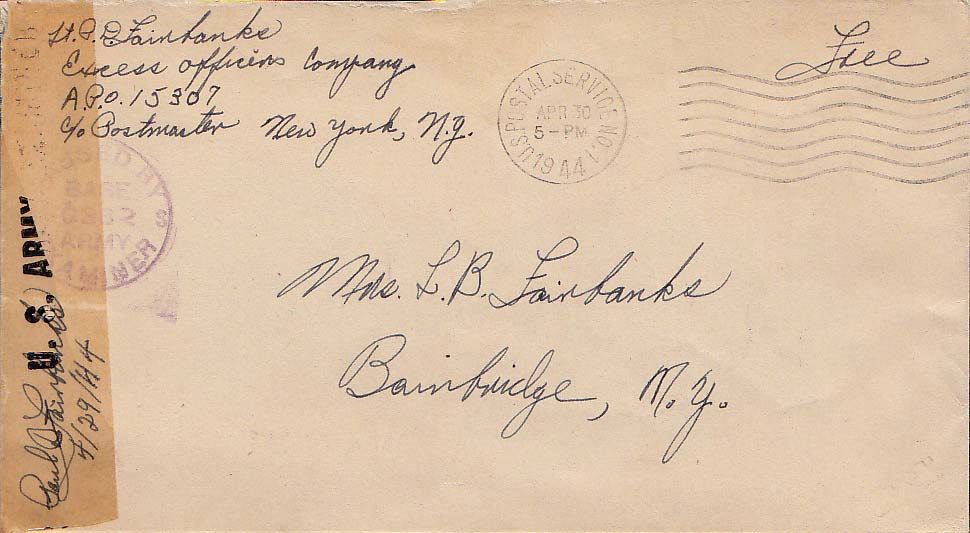 Lt. P. B Fairbanks
Excess officers Company
A.P.O. 15307
c/o Postmaster New York, N.Y.
Free
U.S. POSTAL SERVICE NO. 1.
APR 30
5-PM
1944
BASE
ARMY
EXAMINER
U. S. ARMY
Paul B Fairbanks
4/29/44
Mrs. L. B. Fairbanks
Bainbridge, N. Y.